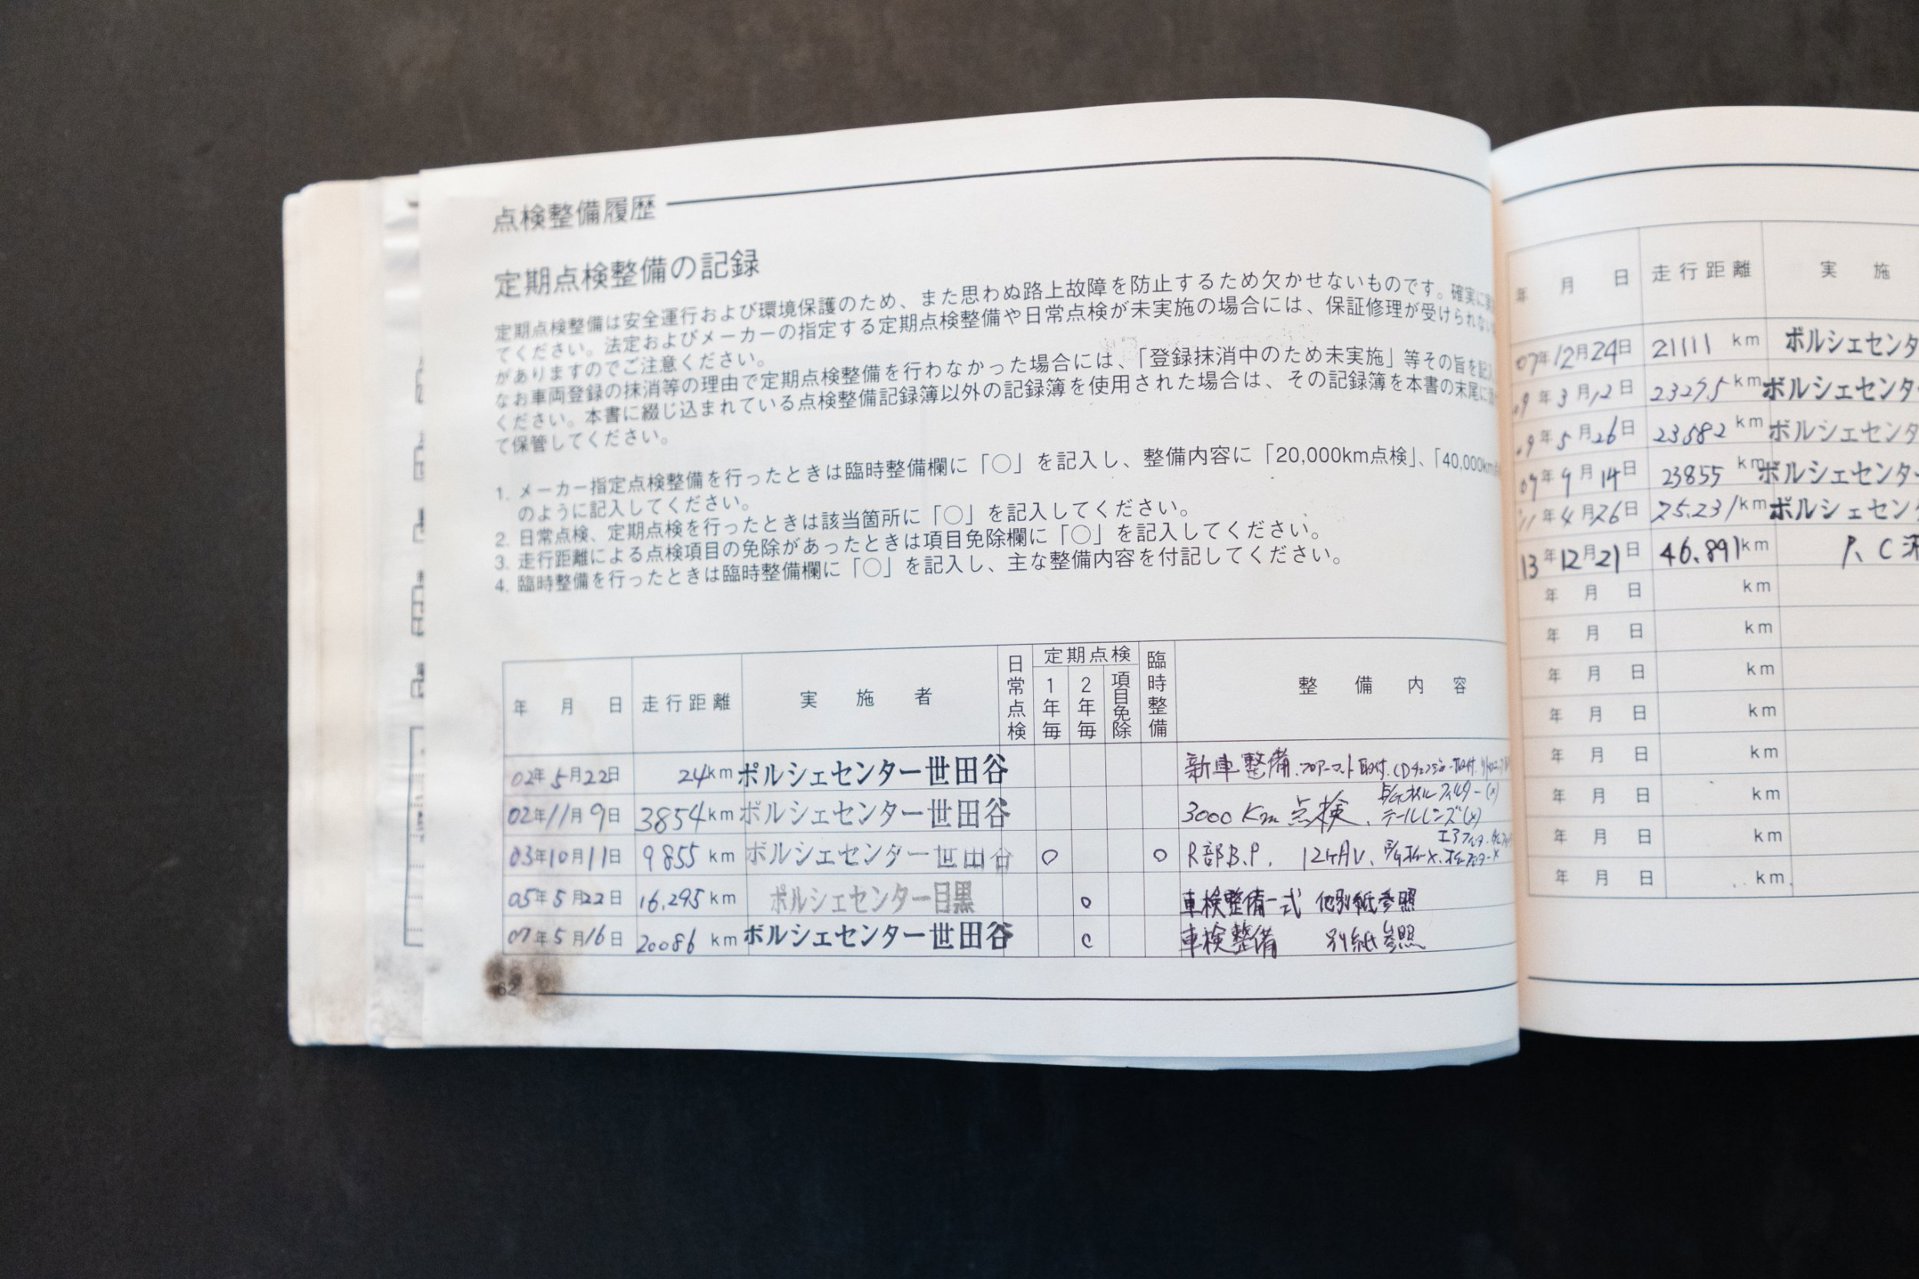 点検整備履歴
定期点検整備の記録
定期点検整備は安全運行および環境保護のため、また思わぬ路上故障を防止するため欠かせないものです。確実に
てください。法定およびメーカーの指定する定期点検整備や日常点検が未実施の場合には、保証修理が受けられない
がありますのでご注意ください。
なお車両登録の抹消等の理由で定期点検整備を行わなかった場合には、「登録抹消中のため未実施」等その旨を記入
ください。本書に綴じ込まれている点検整備記録簿以外の記録簿を使用された場合は、その記録簿を本書の末尾に
て保管してください。
1. メーカー指定点検整備を行ったときは臨時整備欄に「○」を記入し、整備内容に「20,000km点検」、「40,000km
のように記入してください。
2. 日常点検、定期点検を行ったときは該当箇所に「○」を記入してください。
3. 走行距離による点検項目の免除があったときは項目免除欄に「○」を記入してください。
4. 臨時整備を行ったときは臨時整備欄に「○」を記入し、主な整備内容を付記してください。
年 月 日 走行距離 実施者 日常点検 定期点検 1年毎 2年毎 項目免除 臨時整備 整備内容
02年5月22日 24km ポルシェセンター世田谷 新車整備、フロアーマット取付
02年11月9日 3854km ポルシェセンター世田谷 3000Km点検、テールレンズ(x)
03年10月11日 9855km ポルシェセンター世田谷 ○ ○ R部B.P. 12ヶ月
05年5月22日 16,295km ポルシェセンター目黒 ○ 車検整備一式 他別紙参照
07年5月16日 20086km ポルシェセンター世田谷 車検整備 別紙参照
62
年 月 日 走行距離 実施
07年12月24日 21111km ポルシェセンタ
09年3月12日 km ポルシェセンタ
年5月26日 km ポルシェセンタ
9月14日 23855km ポルシェセンター
11年4月26日 25.231km ポルシェセン
13年12月21日 46.891km
年 月 日 km
年 月 日 km
年 月 日 km
年 月 日 km
年 月 日 km
年 月 日 km
年 月 日 km
年 月 日 km